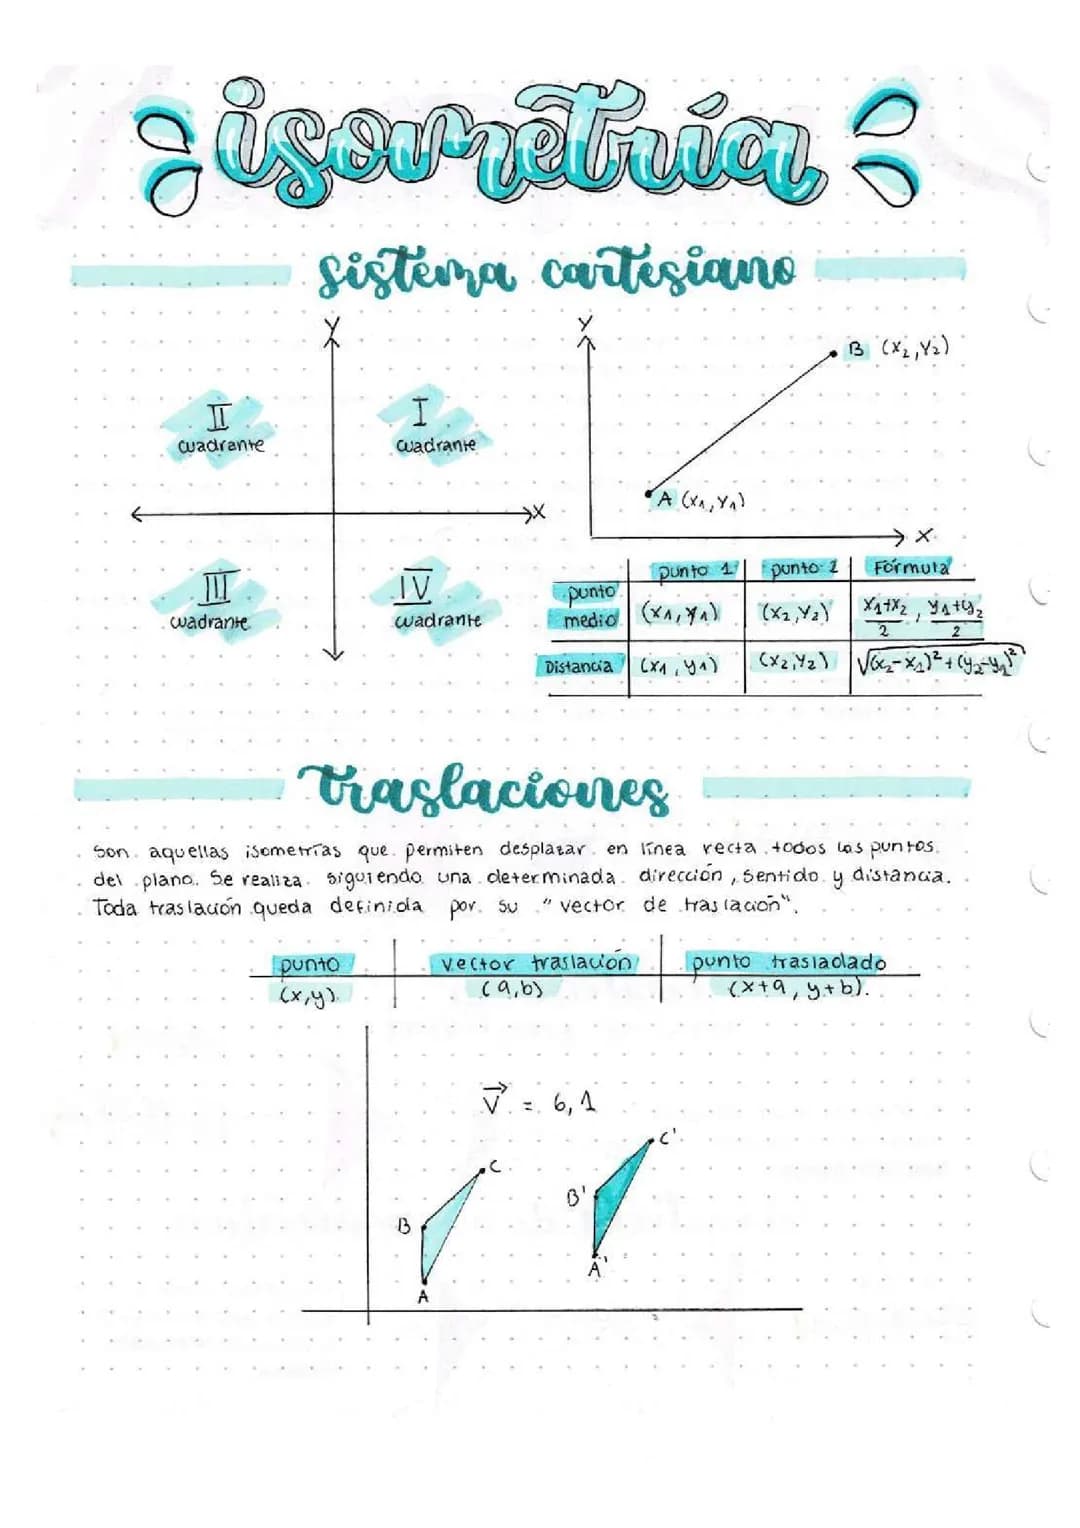 isometría
sistema cartesiano
Y
II
cuadrante
I
cuadrante
X
III
cuadrante
IV
cuadrante
Y
B (x₂,y₂)
A (x₁,y₁)
X
punto 1 punto 2 Fórmula
punto medio (x₁,y₁) (x₂,y₂) x₁+x₂/2 , y₁+y₂/2
Distancia (x₁,y₁) (x₂,y₂) √(x₂-x₁)²+(y₂-y₁)²
Traslaciones
Son aquellas isometrías que permiten desplazar en línea recta todos los puntos
del plano. Se realiza siguiendo una determinada dirección, sentido y distancia.
Toda traslación queda definida por su "vector de traslación".
punto vector traslación punto trasladado
(x,y) (a,b) (x+a, y+b).
V⃗ = 6,1
C'
C
B'
B
A'
A